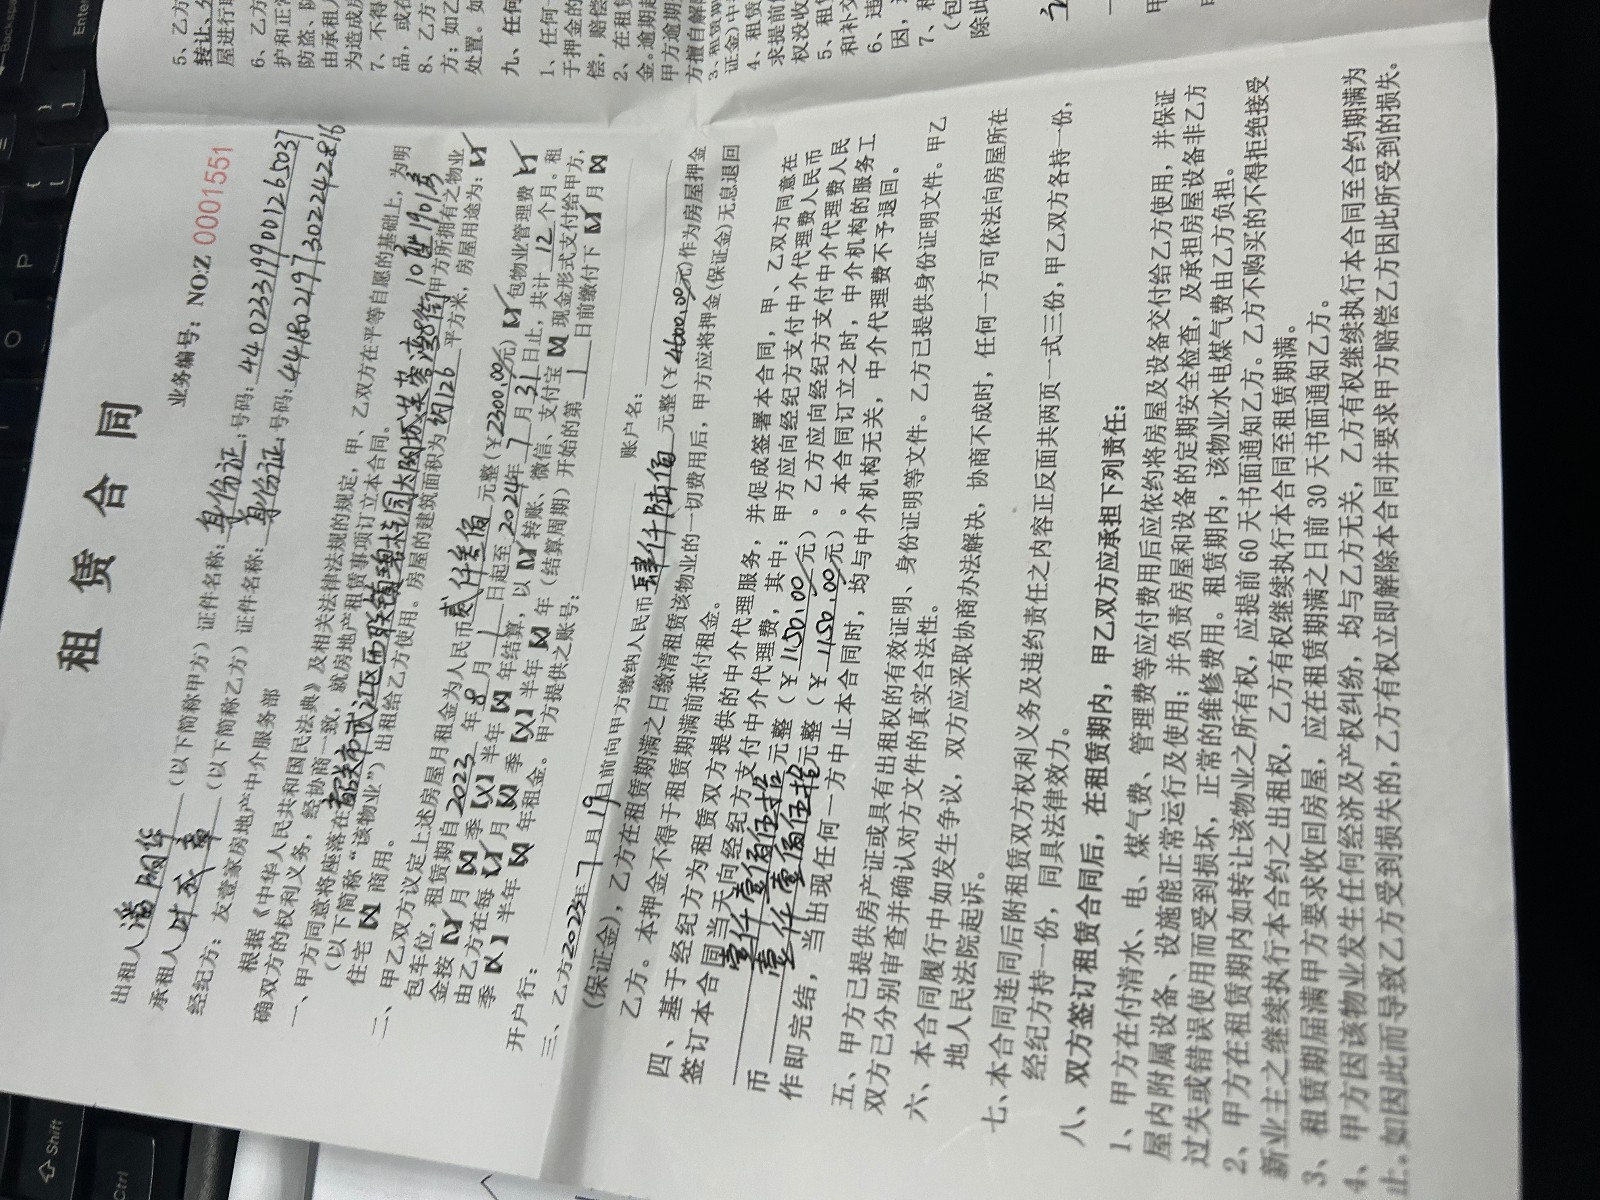 租赁合同
业务编号：NO:Z 0001551
出租人潘 （以下简称甲方）证件名称：身份证；号码：440223199001265037
承租人叶成章（以下简称乙方）证件名称：身份证；号码：441802197302242816
经纪方：友壹家房地产中介服务部
根据《中华人民共和国民法典》及相关法律法规的规定，甲、乙双方在平等自愿的基础上，为明
确双方的权利义务，经协商一致，就房地产租赁事项订立本合同。
一、甲方同意将座落在韶关市武江区西联镇碧桂园太阳城芙蓉湾8街10座1901房甲方所拥有之物业
（以下简称“该物业”）出租给乙方使用。房屋的建筑面积为约126平方米，房屋用途为：
住宅 商用。
二、甲乙双方议定上述房屋月租金为人民币贰仟叁佰元整(￥2300.00元) 包物业管理费
包车位，租赁期自2023年8月1日起至2024年7月31日止，共计12个月。租
金按 月 季 半年 年结算，以 转账、微信、支付宝 现金形式支付给甲方，
由乙方在每 月 季 半年 年（结算周期）开始的第1日前缴付下 月
季 半年 年租金。甲方提供之账号：
开户行： 账户名：
三、乙方2023年7月19日前向甲方缴纳人民币肆仟陆佰元整(￥4600.00元)作为房屋押金
（保证金），乙方在租赁期满之日缴清租赁该物业的一切费用后，甲方应将押金(保证金)无息退回
乙方。本押金不得于租赁期满前抵付租金。
四、基于经纪方为租赁双方提供的中介代理服务，并促成签署本合同，甲、乙双方同意在
签订本合同当天向经纪方支付中介代理费，其中：甲方应向经纪方支付中介代理费人民币
壹仟壹佰伍拾元整（￥1150.00元）。乙方应向经纪方支付中介代理费人民
币壹仟壹佰伍拾元整（￥1150.00元）。本合同订立之时，中介机构的服务工
作即完结，当出现任何一方中止本合同时，均与中介机构无关，中介代理费不予退回。
五、甲方已提供房产证或具有出租权的有效证明、身份证明等文件。乙方已提供身份证明文件。甲乙
双方已分别审查并确认对方文件的真实合法性。
六、本合同履行中如发生争议，双方应采取协商办法解决，协商不成时，任何一方可依法向房屋所在
地人民法院起诉。
七、本合同连同后附租赁双方权利义务及违约责任之内容正反面共两页一式三份，甲乙双方各持一份，
经纪方持一份，同具法律效力。
八、双方签订租赁合同后，在租赁期内，甲乙双方应承担下列责任：
1、甲方在付清水、电、煤气费、管理费等应付费用后应依约将房屋及设备交付给乙方使用，并保证
屋内附属设备、设施能正常运行及使用；并负责房屋和设备的定期安全检查，及承担房屋设备非乙方
过失或错误使用而受到损坏，正常的维修费用。租赁期内，该物业水电煤气费由乙方负担。
2、甲方在租赁期内如转让该物业之所有权，应提前60天书面通知乙方。乙方不购买的不得拒绝接受
新业主之继续执行本合约之出租权，乙方有权继续执行本合同至租赁期满。
3、租赁期届满甲方要求收回房屋，应在租赁期满之日前30天书面通知乙方。
4、甲方因该物业发生任何经济及产权纠纷，均与乙方无关，乙方有权继续执行本合同至合约期满为
止。如因此而导致乙方受到损失的，乙方有权立即解除本合同并要求甲方赔偿乙方因此所受到的损失。
5、乙方
转让、分
屋进行
6、乙方
护和正常
防盗、防
由承租人
为造成房
7、不得
品，或在
8、乙方
方；如乙
处置。如
九、任何
1、任何一
于押金的
偿，赔偿
2、在租赁
金。逾期
甲方逾期
方擅自解除
3、租赁
证金)中
4、租赁
求提前
权没收
5、租
和补交
6、违
因，
7、租
（包
除此